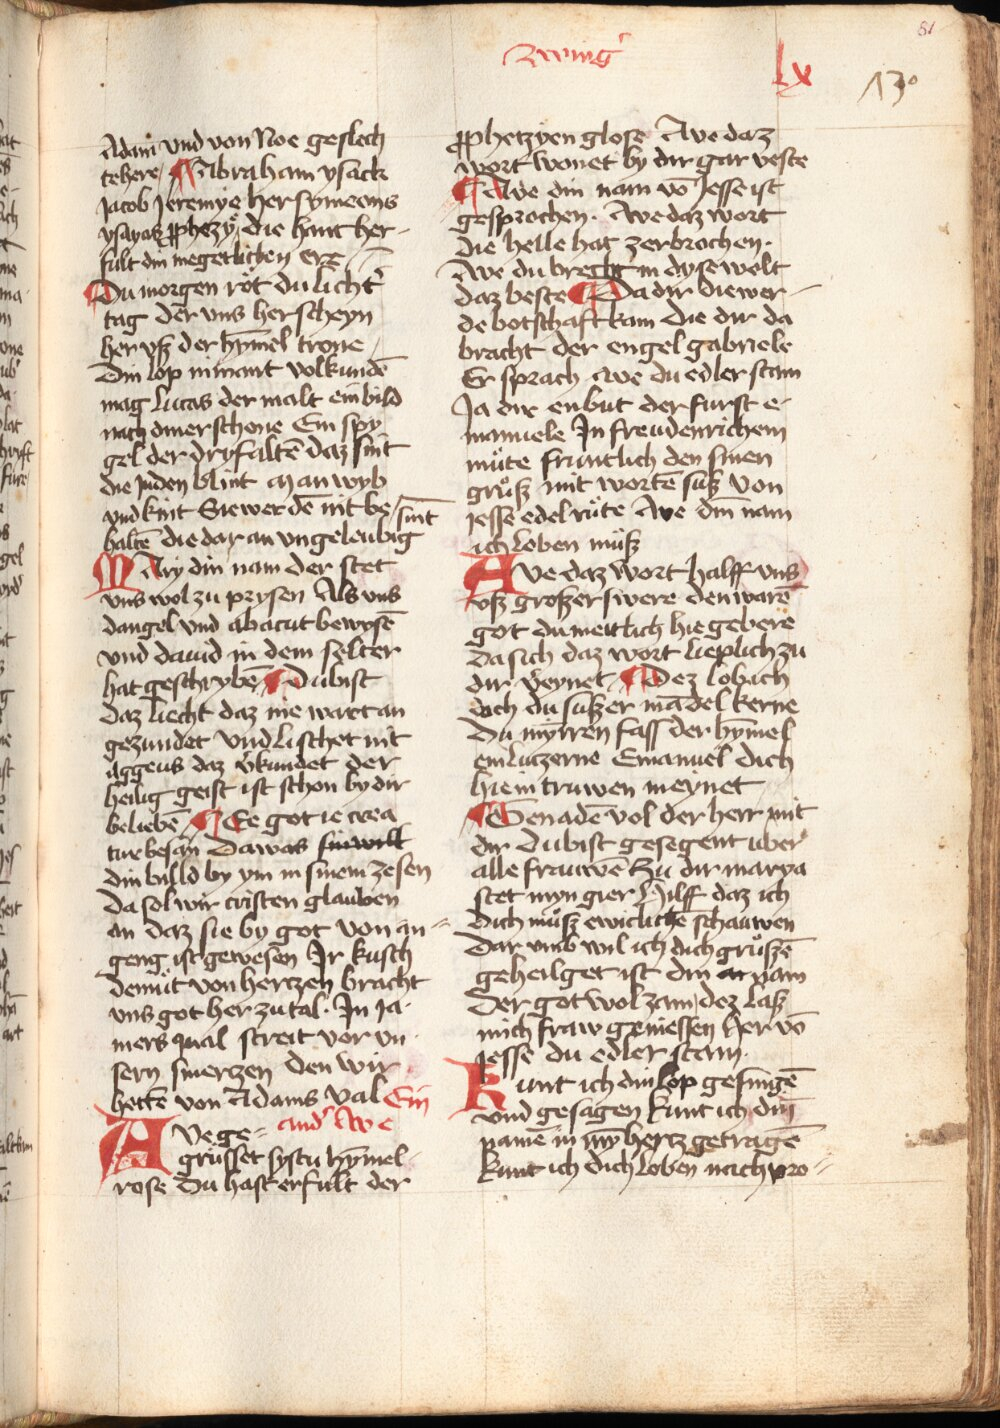 81
Zwing'
lx
130
Adam und von Noe geslech
tehere / Abraham ysack
Jacob Jeremye her symeons
ysayas prophezy die hant her-
fult din megetlichen ere
Du morgen röt du lichter
tag der uns her scheyn
her uß der hymel trone
Din lop nimant volkundē
mag lucas der malt ein bild
nach diner schone Ein spy
gel der dryfaltē daz sint
die Juden blint Man wyb
und kint Sie werdē nit be/
sint
haltē die dar an ungeleubig
Mary din nam der stet
uns wol zu prysen Als uns
dangel und abacut bewysē
und david in dem selter
hat geschrybē Du bist
daz liecht daz nie wart an
gezundet Und lischet nit
aggeus daz v'kundet der
heilig geist ist schon by dir
belieben Ee got ie crea
tur besan Da was sin will
din billd by ym in sinem zesen
Da sol wir cristen glauben
an daz sie by got von an-
geng ist gewesen Ir kusch
demüt von hertzen bracht
uns got her zu tal. In Ja-
mers qual streit vor un
sern smerzen den wir
hettē von Adams val Ein
and' Ave
Ave ge-
grüsset systu hymel-
rose Du hast erfult der
prophetzyen glose Ave daz
wort wonet by dir gar veste
Ave din nam vō Jesse ist
gesprochen. Ave daz wort
die helle hat zerbrochen.
Ave du breght in dyse welt
daz beste Da dir die wer-
de botschaft kam Die dir da
bracht der engel gabriele
Er sprach Ave du edler stam
Ja dir enbut der furst e-
manuele In freudenrichem
müte fruntlich den sinen
grüß mit wortē suß Von
jesse edel rüte Ave din nam
ich loben müß
Ave daz wort halff uns
uß großer swere den ware
got du meitlich hie gebere
Da sich daz wort lieplich zu
dir v'eynet Dez lob ich
dich du sußer mādel kerne
Du myrren fass der hymel
ein luczerne Emanuel dich
hie in truwen meynet
Genadē vol der herr mit
dir Du bist gesegent uber
alle frauwē Zu dir marya
stet myn gier Hilff daz ich
dich müß ewicliche schauwen
Dar umb wil ich dich grüßē
geheilget ist din nam
Der got wol zam dez laß
mich fraw geniessen Her vō
jesse du edler stam.
Kunt ich din lop gesingē
und gesagen kunt ich din
namē in mȳ hertz getragē
kunt ich dich loben nach pro-